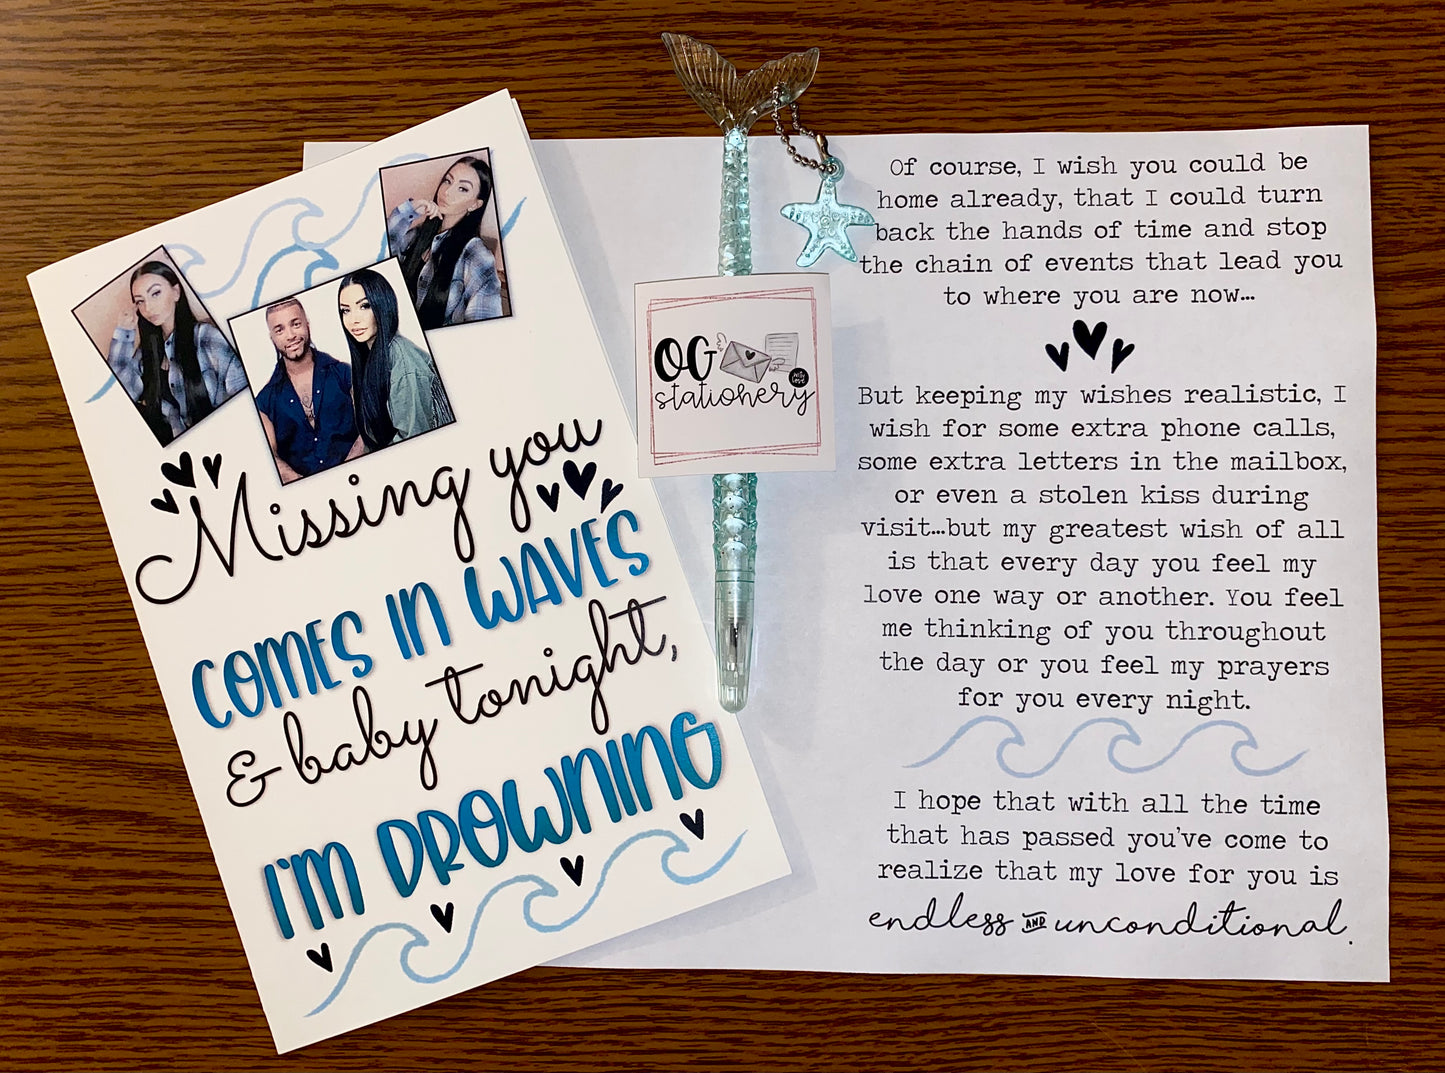 Missing you
COMES IN WAVES
& baby tonight,
I'M DROWNING
OG
stationery
With
Love
Of course, I wish you could be
home already, that I could turn
back the hands of time and stop
the chain of events that lead you
to where you are now...
But keeping my wishes realistic, I
wish for some extra phone calls,
some extra letters in the mailbox,
or even a stolen kiss during
visit...but my greatest wish of all
is that every day you feel my
love one way or another. You feel
me thinking of you throughout
the day or you feel my prayers
for you every night.
I hope that with all the time
that has passed you've come to
realize that my love for you is
endless AND unconditional.